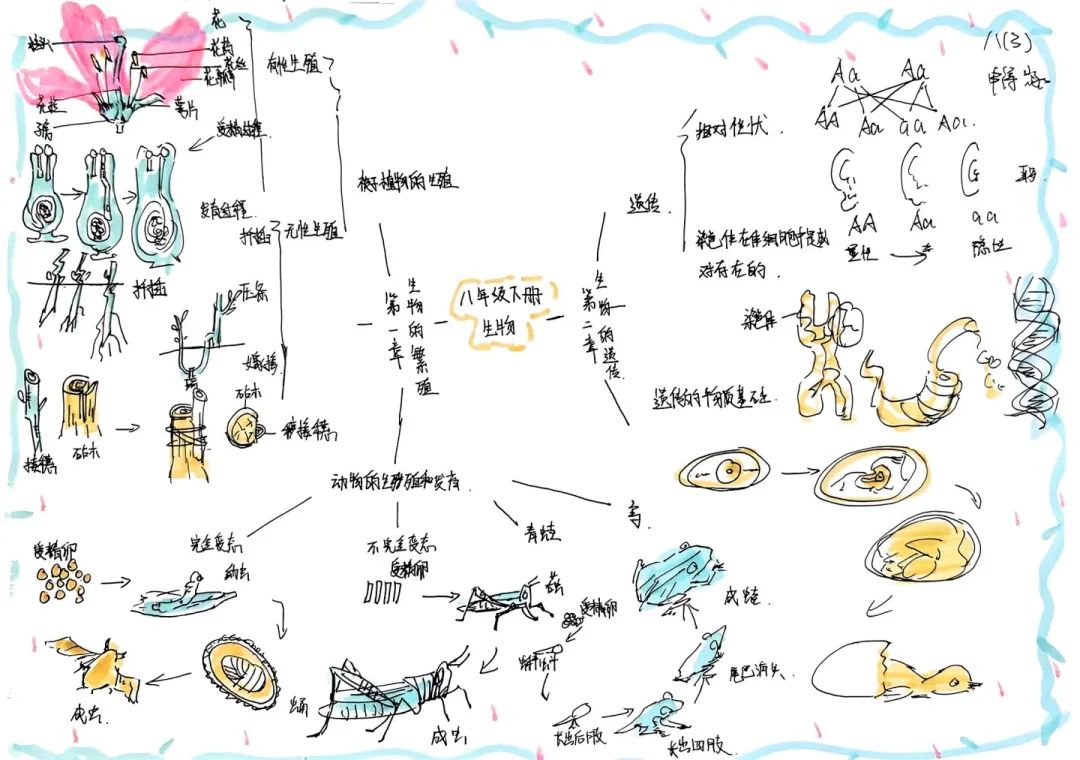 花
柱头
花药
花丝
花瓣
有性生殖
花柱
萼片
受精过程
发育过程
扦插
无性生殖
被子植物的生殖
扦插
压条
嫁接
砧木
接穗
砧木
接穗
第一章
生物的繁殖
八年级下册
生物
第二章
生物的遗传
八(3)
相对性状
Aa
Aa
AA
Aa
aa
Aa
遗传
AA
Aa
aa
显性
隐性
对存在的
遗传的物质基础
动物的生殖和发育
完全变态
受精卵
幼虫
蛹
成虫
不完全变态
受精卵
成虫
青蛙
受精卵
蝌蚪
长出后肢
长出四肢
尾巴消失
成蛙
鸟